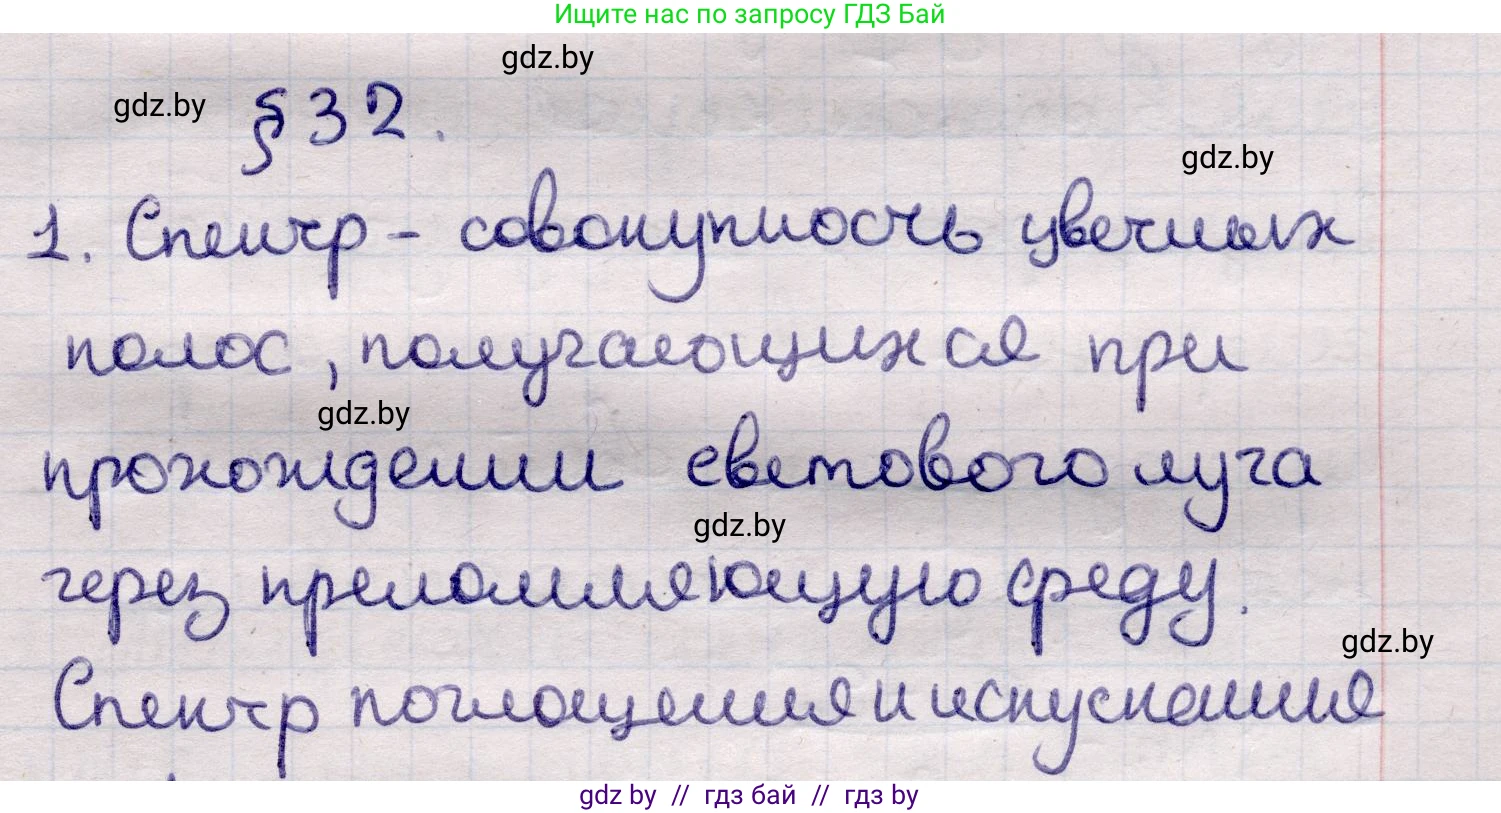 Ищите нас по запросу ГДЗ Бай
gdz.by
gdz.by § 32.
gdz.by
1. Спектр - совокупность цветных
полос, получающихся при
gdz.by
прохождении светового луча
gdz.by
через преломляющую среду.
gdz.by
Спектр поглощения и испускания
gdz by // гдз бай // гдз by